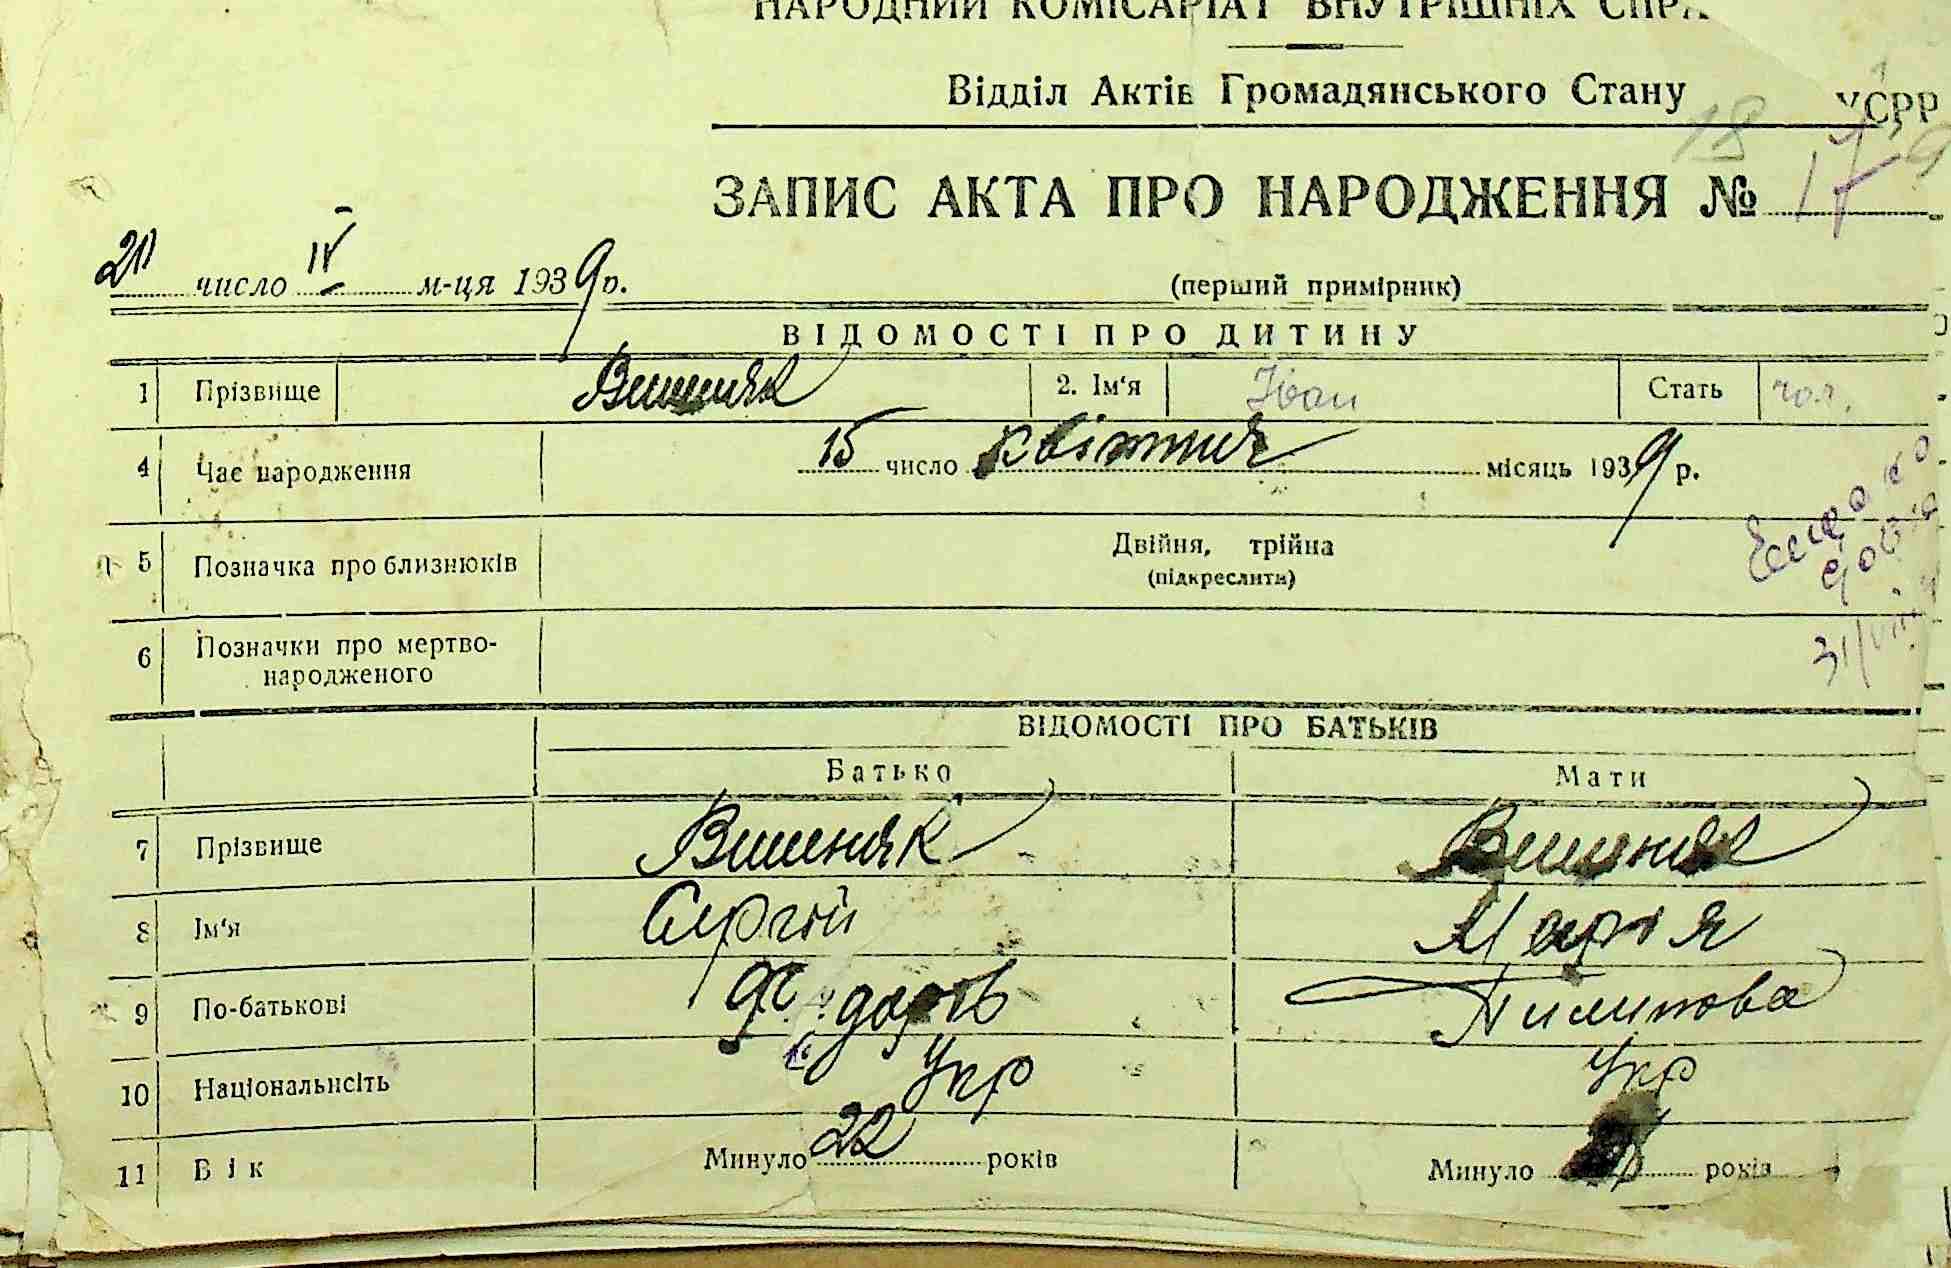 НАРОДНИЙ КОМІСАРІАТ ВНУТРІШНІХ СПРА
Відділ Актів Громадянського Стану УСРР
18
ЗАПИС АКТА ПРО НАРОДЖЕННЯ № 17
20 число IV м-ця 1939 р. (перший примірник)
ВІДОМОСТІ ПРО ДИТИНУ
1 Прізвище Вишняк 2. Ім'я Іван Стать чол.
4 Час народження 15 число квітня місяць 1939 р.
5 Позначка про близнюків Двійня, трійна
(підкреслити)
6 Позначки про мертво-
народженого
31/VIII
ВІДОМОСТІ ПРО БАТЬКІВ
Батько Мати
7 Прізвище Вишняк Вишняк
8 Ім'я Сергій Марія
9 По-батькові Федоров Пилипова
10 Національність Укр Укр
11 Вік Минуло 22 років Минуло років